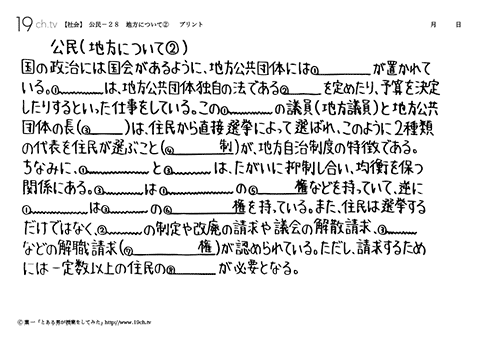 19ch.tv 【社会】 公民－28 地方について② プリント 月 日
公民(地方について②)
国の政治には国会があるように、地方公共団体には① が置かれて
いる。① は、地方公共団体独自の法である② を定めたり、予算を決定
したりするといった仕事をしている。この① の議員(地方議員)と地方公共
団体の長(③ )は、住民から直接選挙によって選ばれ、このように2種類
の代表を住民が選ぶこと(④ 制)が、地方自治制度の特徴である。
ちなみに、① と③ は、たがいに抑制し合い、均衡を保つ
関係にある。③ は① の⑤ 権などを持っていて、逆に
① は③ の⑥ 権を持っている。また、住民は選挙する
だけではなく、② の制定や改廃の請求や議会の解散請求、③
などの解職請求(⑦ 権)が認められている。ただし、請求するため
には一定数以上の住民の⑧ が必要となる。
© 葉一「とある男が授業をしてみた」http://www.19ch.tv